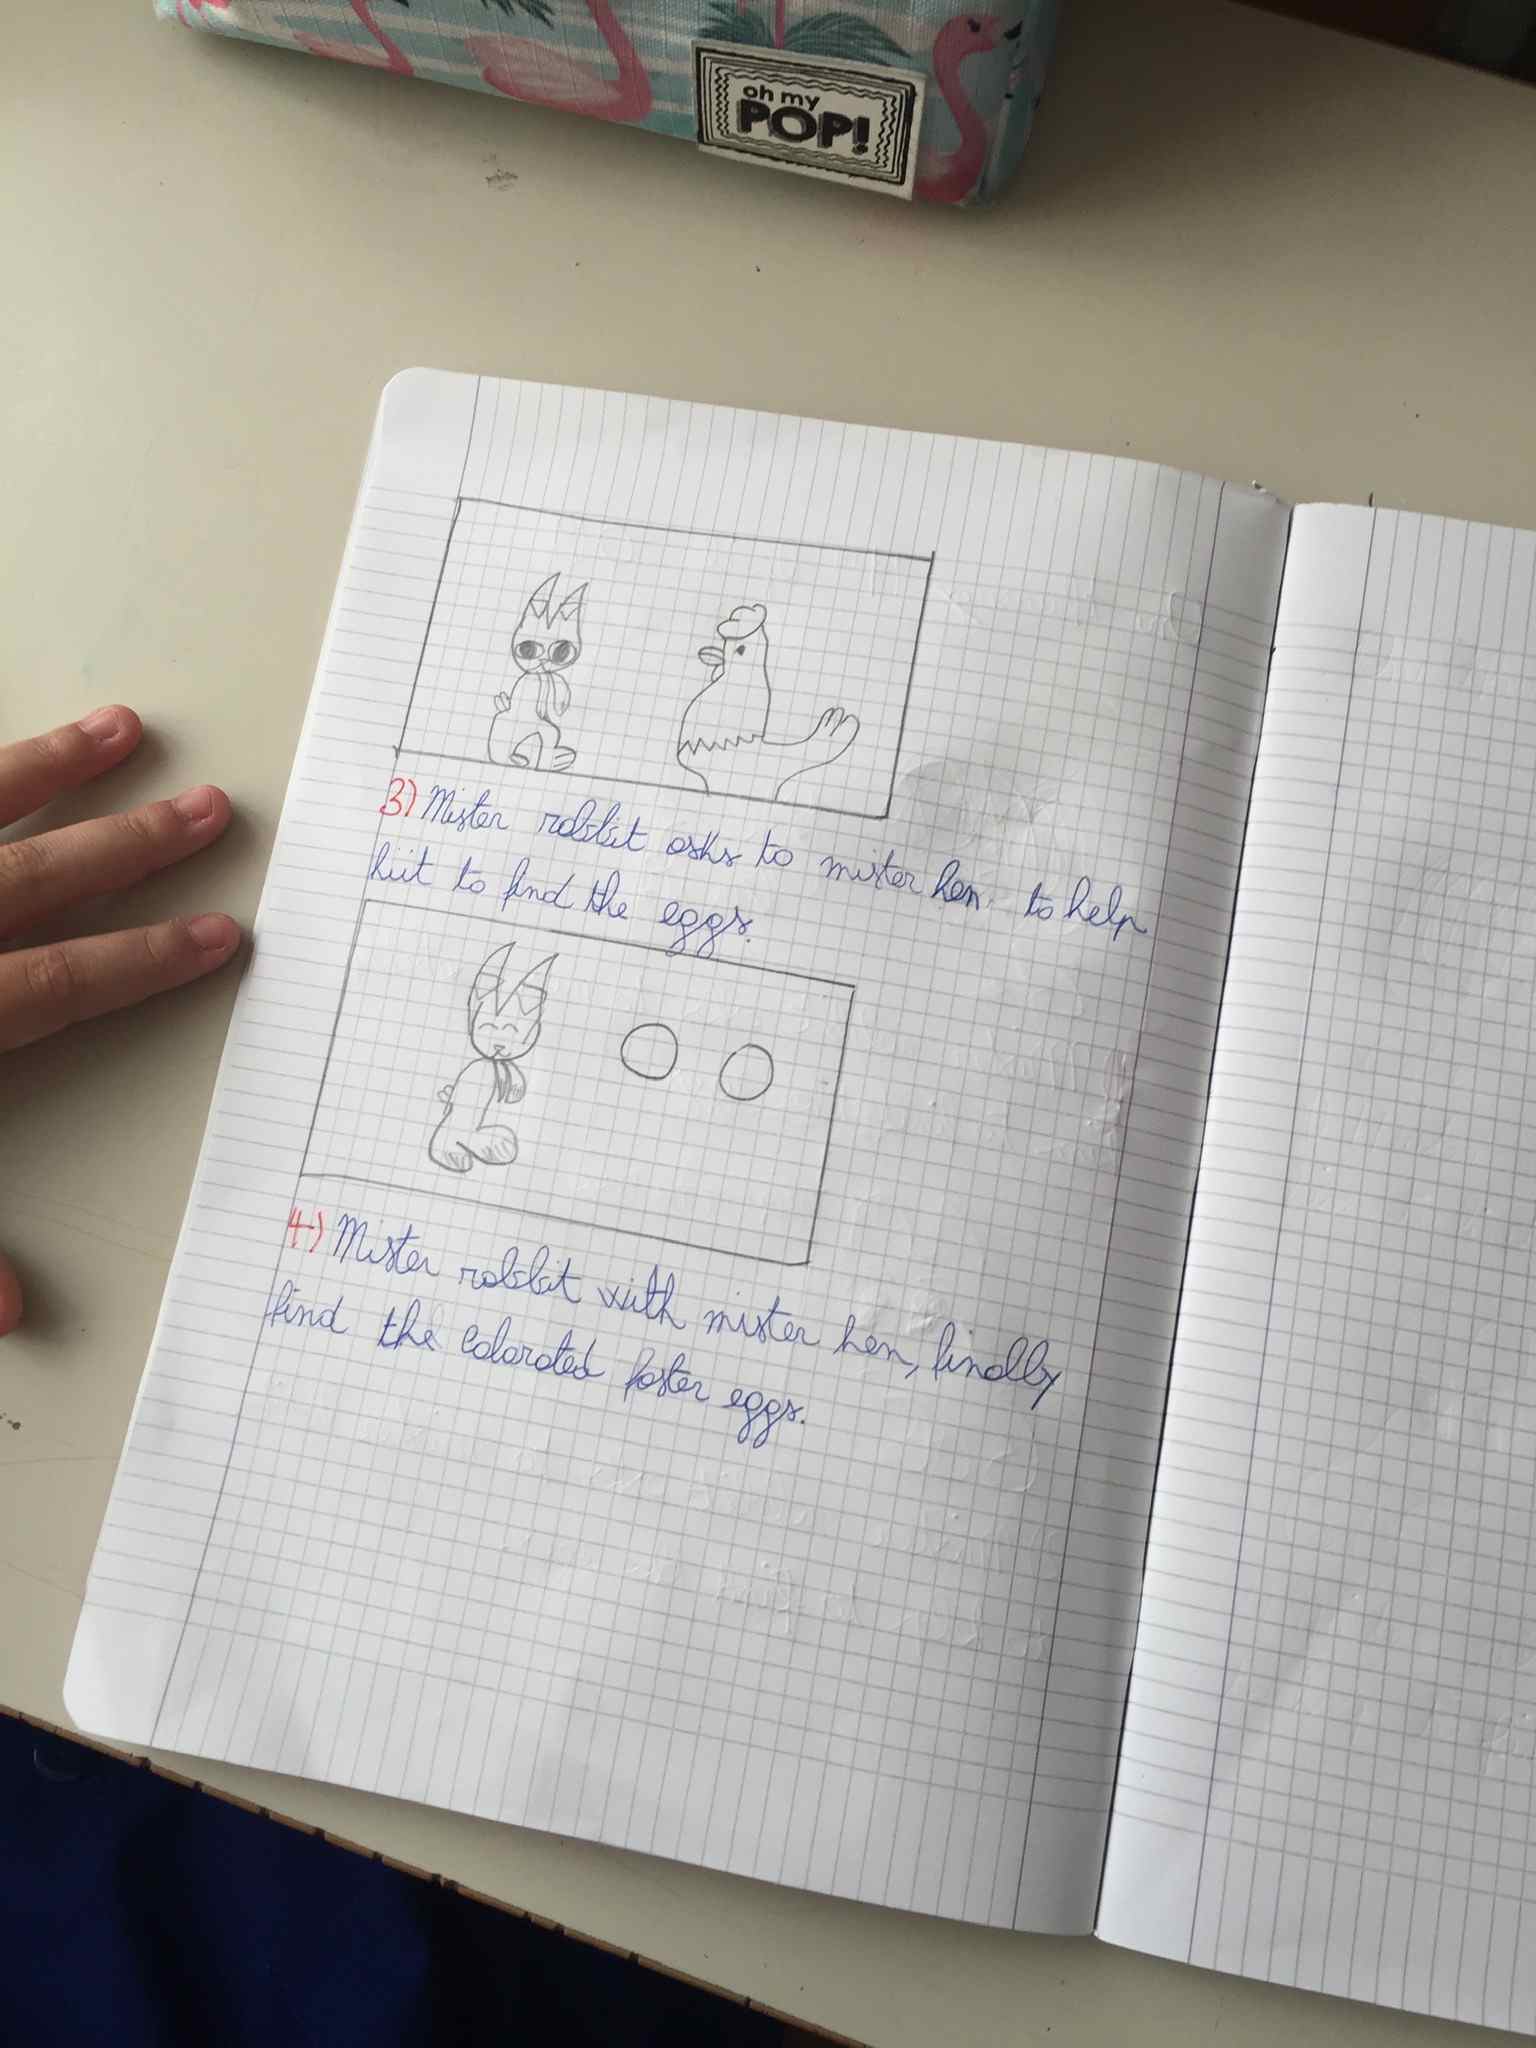 oh my
POP!
3) Mister rabbit asks to mister hen to help
hiit to find the eggs.
4) Mister rabbit with mister hen, finally
find the colorated foster eggs.